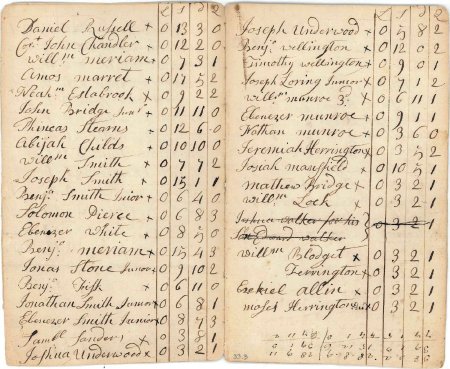 Daniel Russell x 0 13 3 0
Cpt John Chandler x 0 12 2 0
Willm meriam x 0 7 3 1
Amos marret x 0 17 5 2
Nehm Estabrook x 0 9 2 2
John Bridge Junr x 0 11 11 0
Phineas Stearns x 0 12 6 0
Abijah Childs x 0 10 10 0
Willm Smith x 0 7 7 2
Joseph Smith x 0 15 1 1
Benj. Smith Junior x 0 6 4 0
Solomon Pierce x 0 6 8 3
Ebenezer white x 0 8 5 0
Benj. meriam x 0 15 4 3
Jonas Stone Junior x 0 9 10 2
Benj. Fisk x 0 6 11 0
Jonathan Smith Junior x 0 6 8 1
Ebenezer Smith Junior x 0 8 7 3
Saml Sanders x 0 3 8 1
Joshua Underwood x 0 3 2 1
Joseph Underwood x 0 5 8 2
Benj. wellington x 0 12 0 2
Timothy wellington x 0 9 0 1
Joseph Loring Junior x 0 7 1 2
Willm munroe 3d x 0 6 11 1
Ebenezer munroe x 0 9 1 1
Nathan munroe x 0 3 6 0
Jeremiah Herrington x 0 3 5 2
Josiah mansfield x 0 10 5 1
mathew Bridge x 0 3 2 1
Willm Lock x 0 3 2 1
Joshua walker for his 0 3 2 1
Son Edward walker
Willm Blodget x 0 3 2 1
Ferrington x 0 3 2 1
Ezekiel allin x 0 3 2 1
moses Herrington x 0 3 2 1
33.3